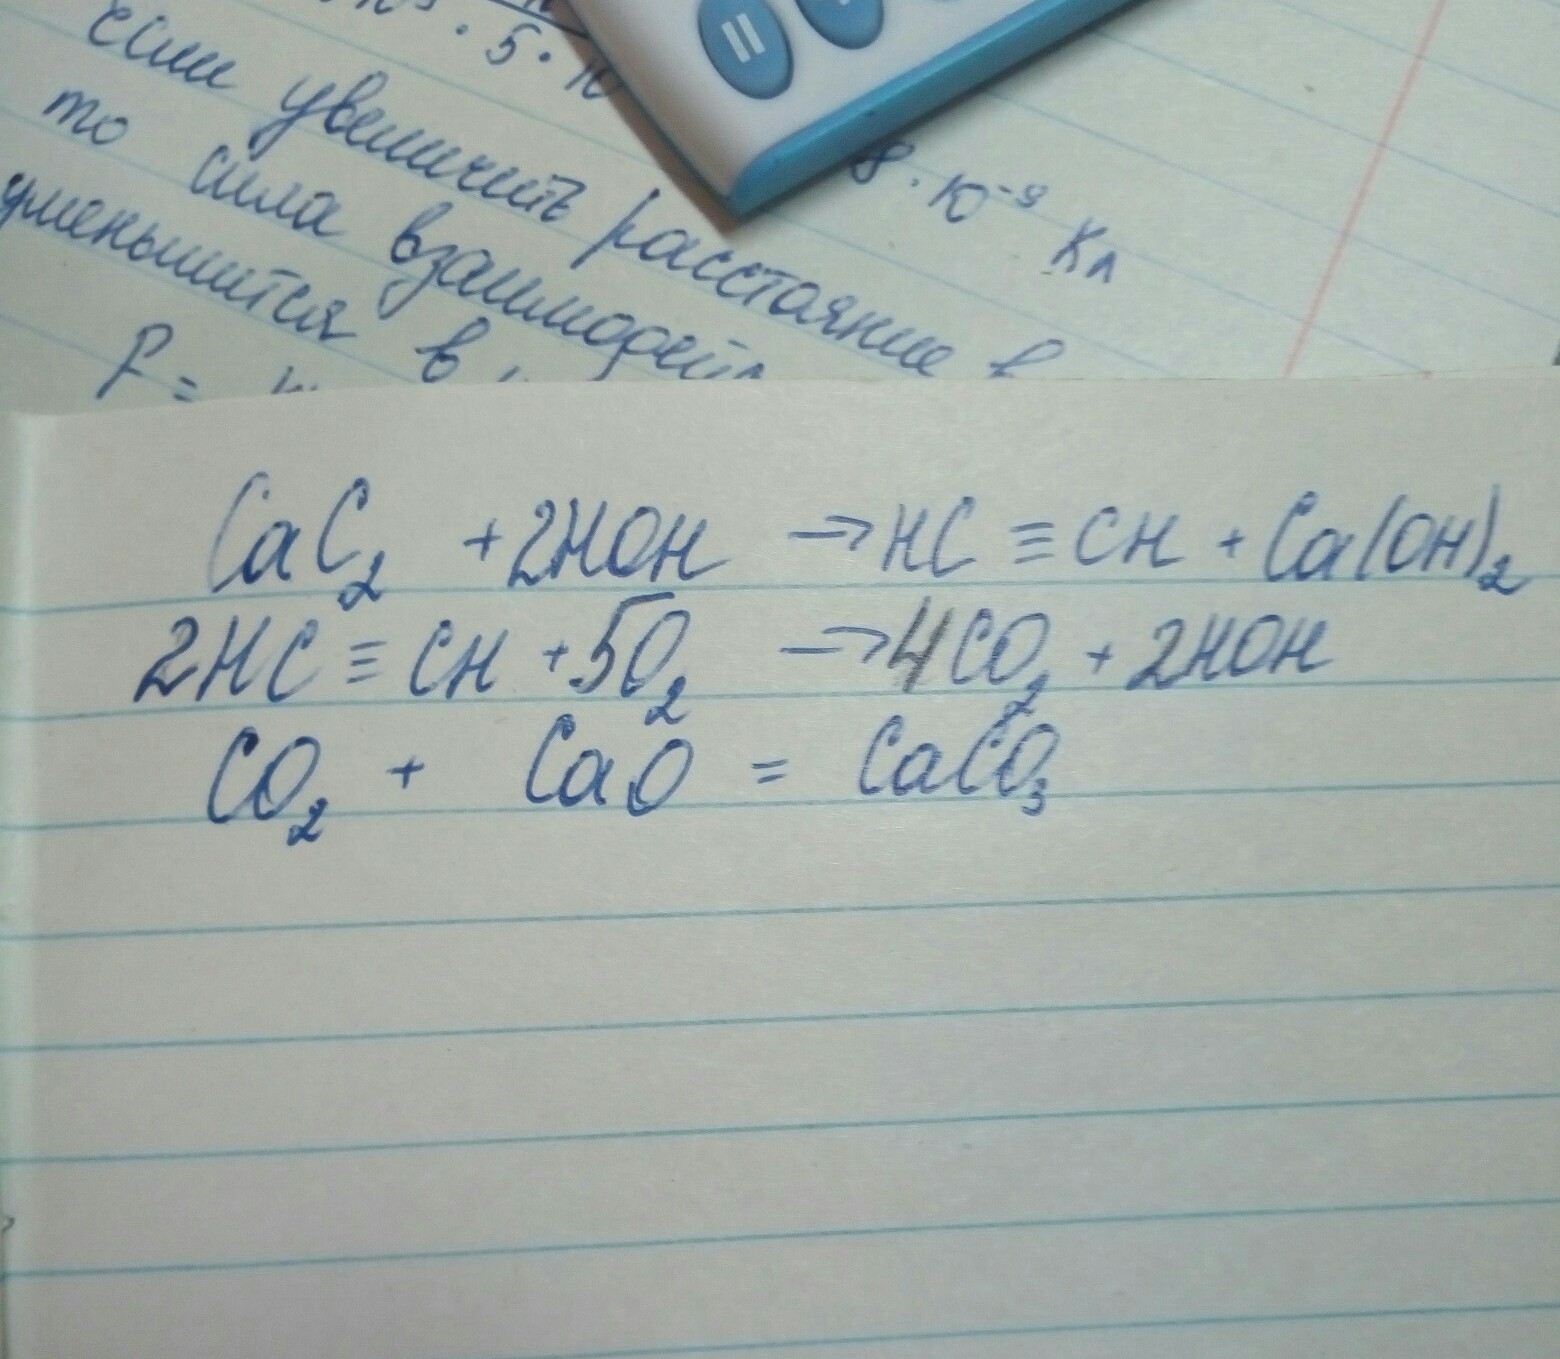 · 5 · 10
8 · 10⁻⁹ Кл
если увеличить расстояние в
то сила взаимодейс
уменьшится в
F =
CaC₂ + 2HOH → HC ≡ CH + Ca(OH)₂
2HC ≡ CH + 5O₂ → 4CO₂ + 2HOH
CO₂ + CaO = CaCO₃